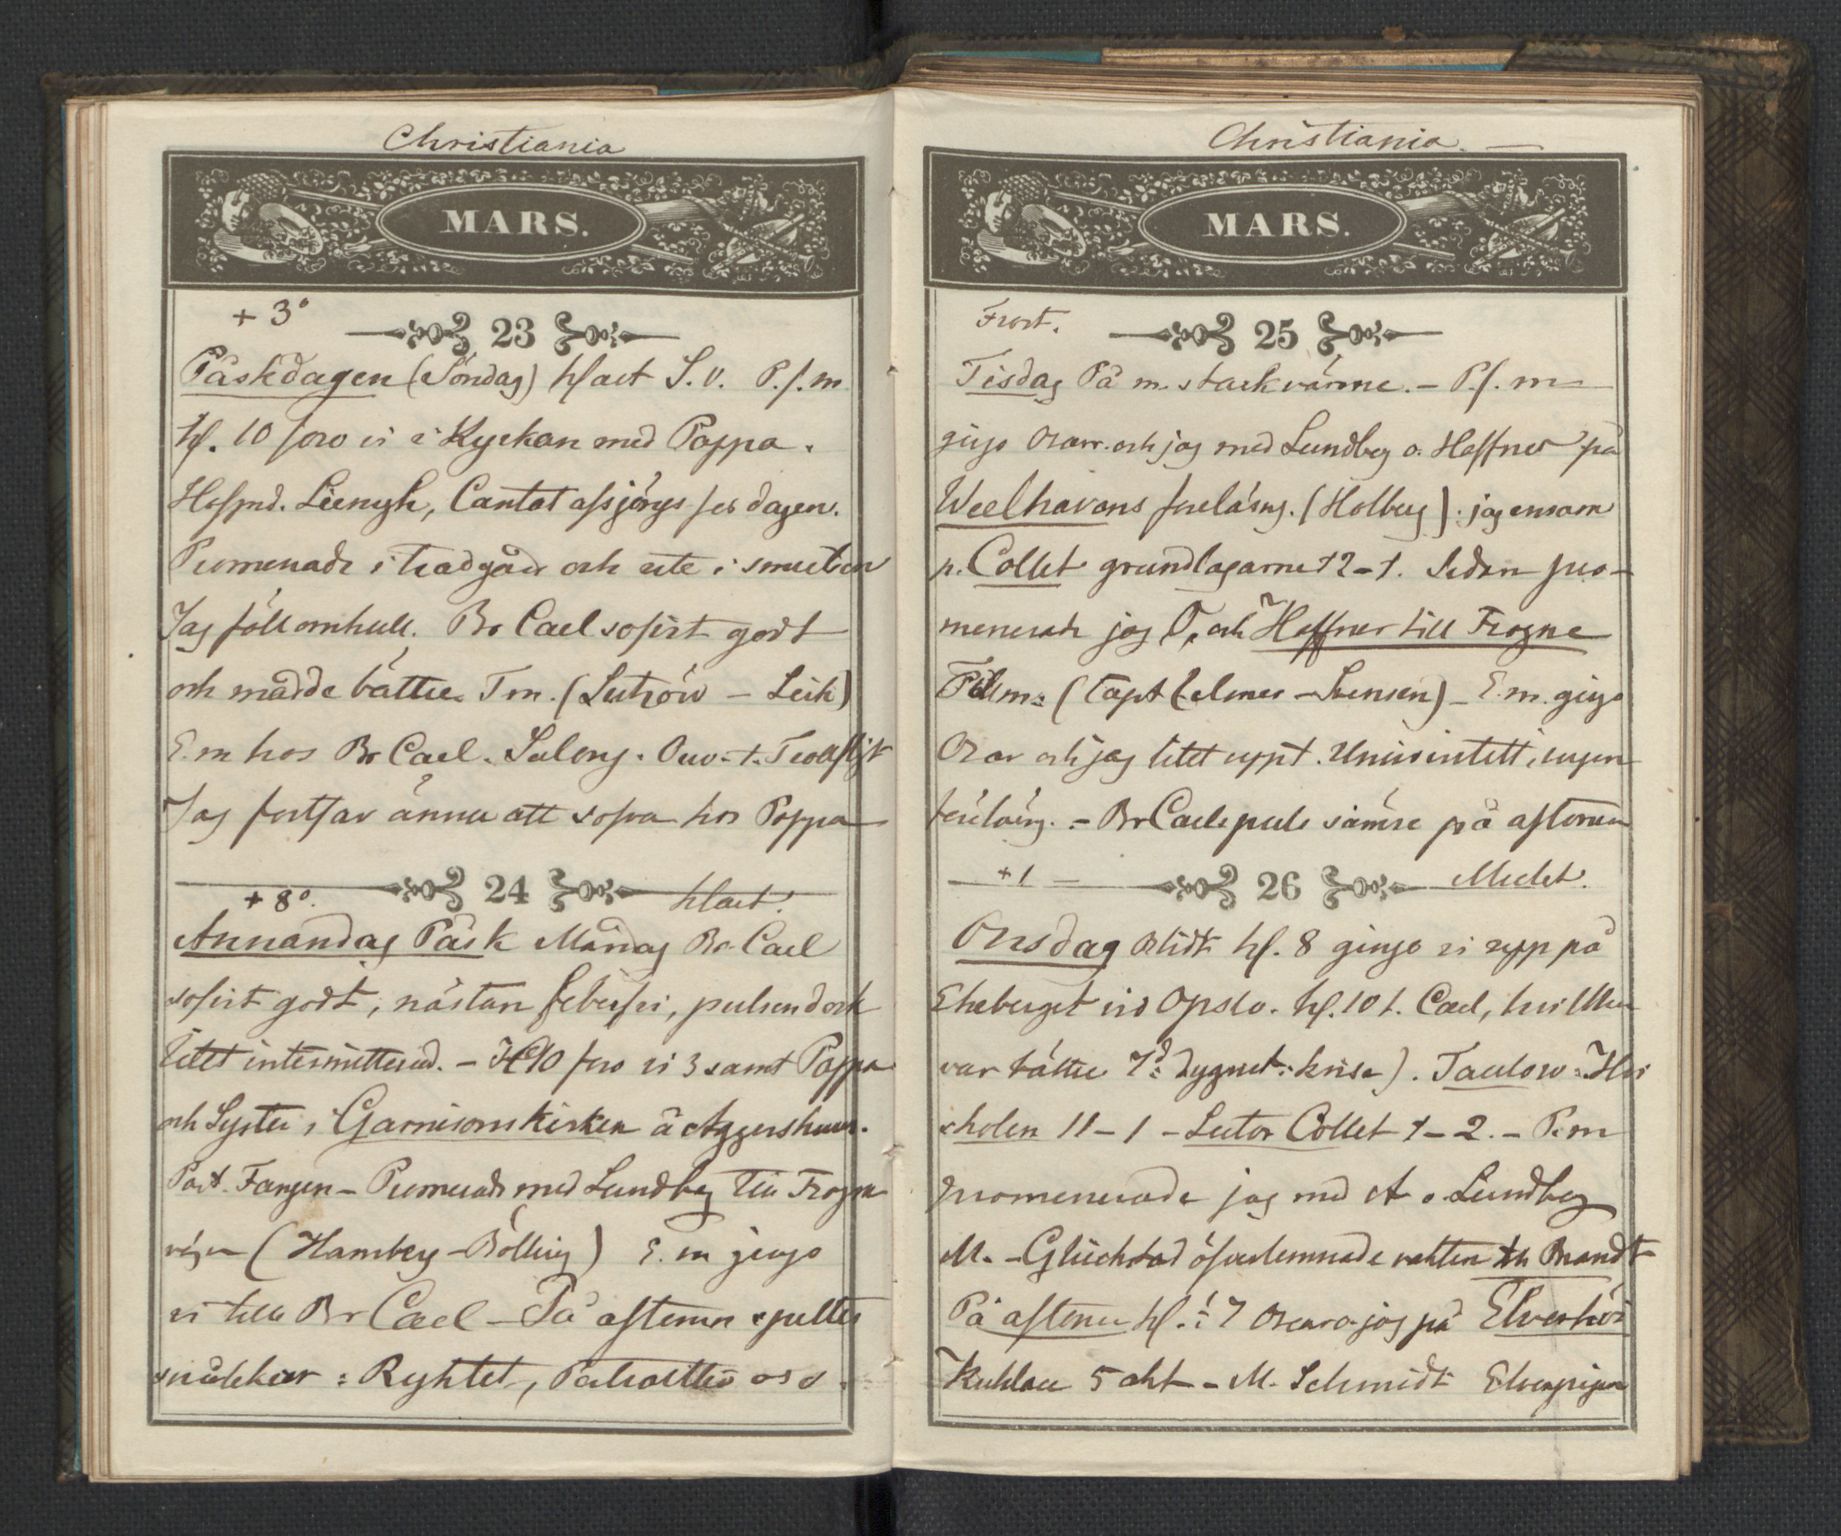 Christiania
MARS.
+ 3°
23
Påskdagen (Söndag) klart S.V. P.f.m
kl. 10 foro vi i Kyrkan med Pappa.
Cantat afsjöngs för dagen.
Promenade i trädgård och ute i
Jag föll omkull. Br Carl sofvit godt
och mådde bättre. T m. (Lutzow –
E.m hos Br Carl.
Jag fortfar ännu att sofva hos Pappa
24
+ 8°. klart.
Annandag Påsk Måndag Br. Carl
sofvit godt, nästan feberfri, pulsen dock
litet intermitterad. – Kl 10 foro vi 3 samt Pappa
och Syster i Garnisons kirken å Aggershuus.
Past. Fangen – Promenade med Lundberg till Frogner
vägen (Hamberg – Bölling) E. m gingo
vi till Br Carl – På aftonen speltes
: Ryktet,
Christiania. —
MARS.
Frost.
25
Tisdag På m. stark värme. – P.f. m
gingo Oscar och jag med Lundberg o. Haffner på
Welhavens föreläsng. (Holberg). jag ensam
p. Collet grundlagarne 12–1. Sedan pro-
menerade jag O, och Haffner till Frogne
(Capt – Svensen) – E. m. gingo
Oscar och jag litet uppt. Universitett, ingen
föreläsng. – Br Carls puls sämre på aftonen
+1
26
Mulet.
Onsdag Blidt kl. 8 gingo vi upp på
Ekeberget vid Opslo. kl. 10 t. Carl, hvilken
var bättre 7d dygnet: krise). Taulow.
skolen 11–1 – Lector Collet 1–2. – P.m
promenerade jag med A o Lundberg
M. – Glückstad öfverlemnade vakten th Brandt
På aftonen kl. ½ 7 Oscar o jag på Elverhöi
Kuhlau 5 akt – M. Schmidt Elverpigen